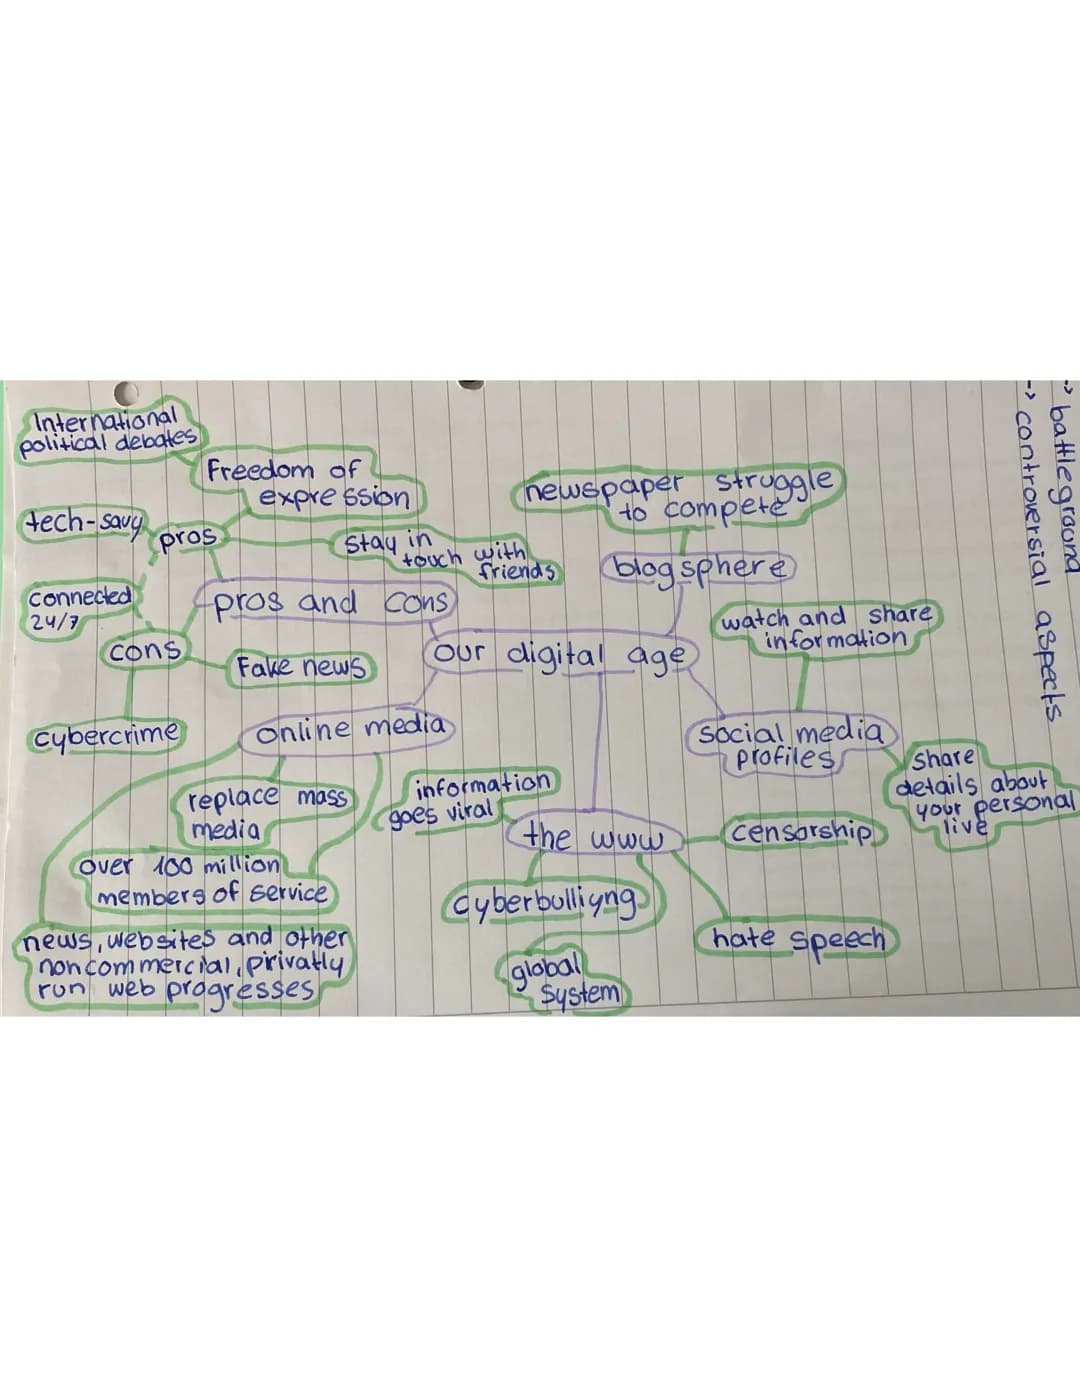 International
political debates
Freedom of
expression
tech-savy
pros
stay in
touch with
friends
connected
24/7
pros and cons
cons
Fake news
cybercrime
newspaper struggle
to compete
blogsphere
our digital age
watch and share
information
social media
profiles
share
details about
your personal
live
online media
replace mass
media
over 100 million
members of service
news, websites and other
noncommercial, privatly
run web progresses
information
goes viral
the www
censorship
cyberbulliyng
hate speech
global
system
-> battleground
-> controversial aspects